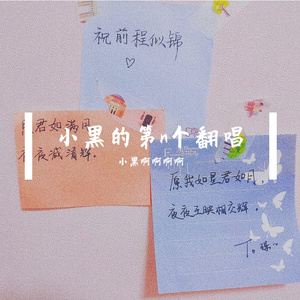 祝前程似锦
小黑的第n个翻唱
小黑啊啊啊啊
君如满月
夜夜减清辉。
原我如星君如月，
夜夜流光相皎洁。